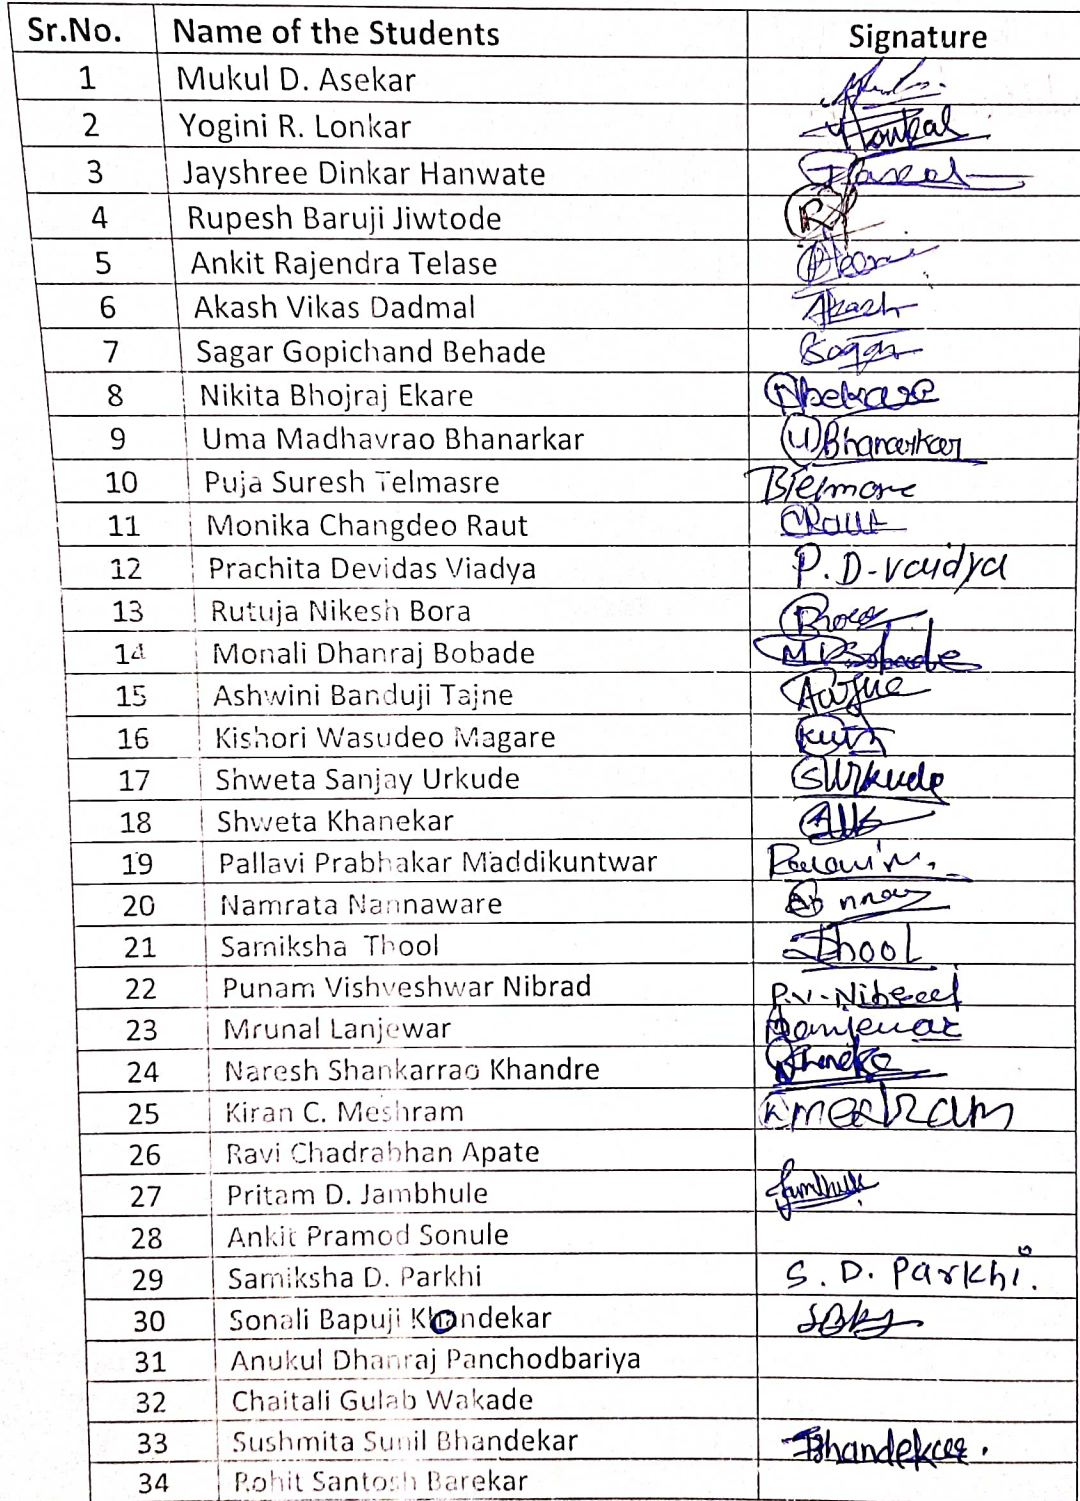 Sr.No. Name of the Students Signature
1 Mukul D. Asekar
2 Yogini R. Lonkar
3 Jayshree Dinkar Hanwate
4 Rupesh Baruji Jiwtode
5 Ankit Rajendra Telase
6 Akash Vikas Dadmal Akash
7 Sagar Gopichand Behade
8 Nikita Bhojraj Ekare
9 Uma Madhavrao Bhanarkar UBhanarkar
10 Puja Suresh Telmasre
11 Monika Changdeo Raut
12 Prachita Devidas Viadya P.D-vaidya
13 Rutuja Nikesh Bora
14 Monali Dhanraj Bobade
15 Ashwini Banduji Tajne
16 Kishori Wasudeo Magare
17 Shweta Sanjay Urkude SUrkude
18 Shweta Khanekar
19 Pallavi Prabhakar Maddikuntwar
20 Namrata Nannaware
21 Samiksha Thool Thool
22 Punam Vishveshwar Nibrad
23 Mrunal Lanjewar
24 Naresh Shankarrao Khandre
25 Kiran C. Meshram Kmeshram
26 Ravi Chadrabhan Apate
27 Pritam D. Jambhule Jambhule
28 Ankit Pramod Sonule
29 Samiksha D. Parkhi S. D. Parkhi.
30 Sonali Bapuji Khondekar
31 Anukul Dhanraj Panchodbariya
32 Chaitali Gulab Wakade
33 Sushmita Sunil Bhandekar
34 Rohit Santosh Barekar